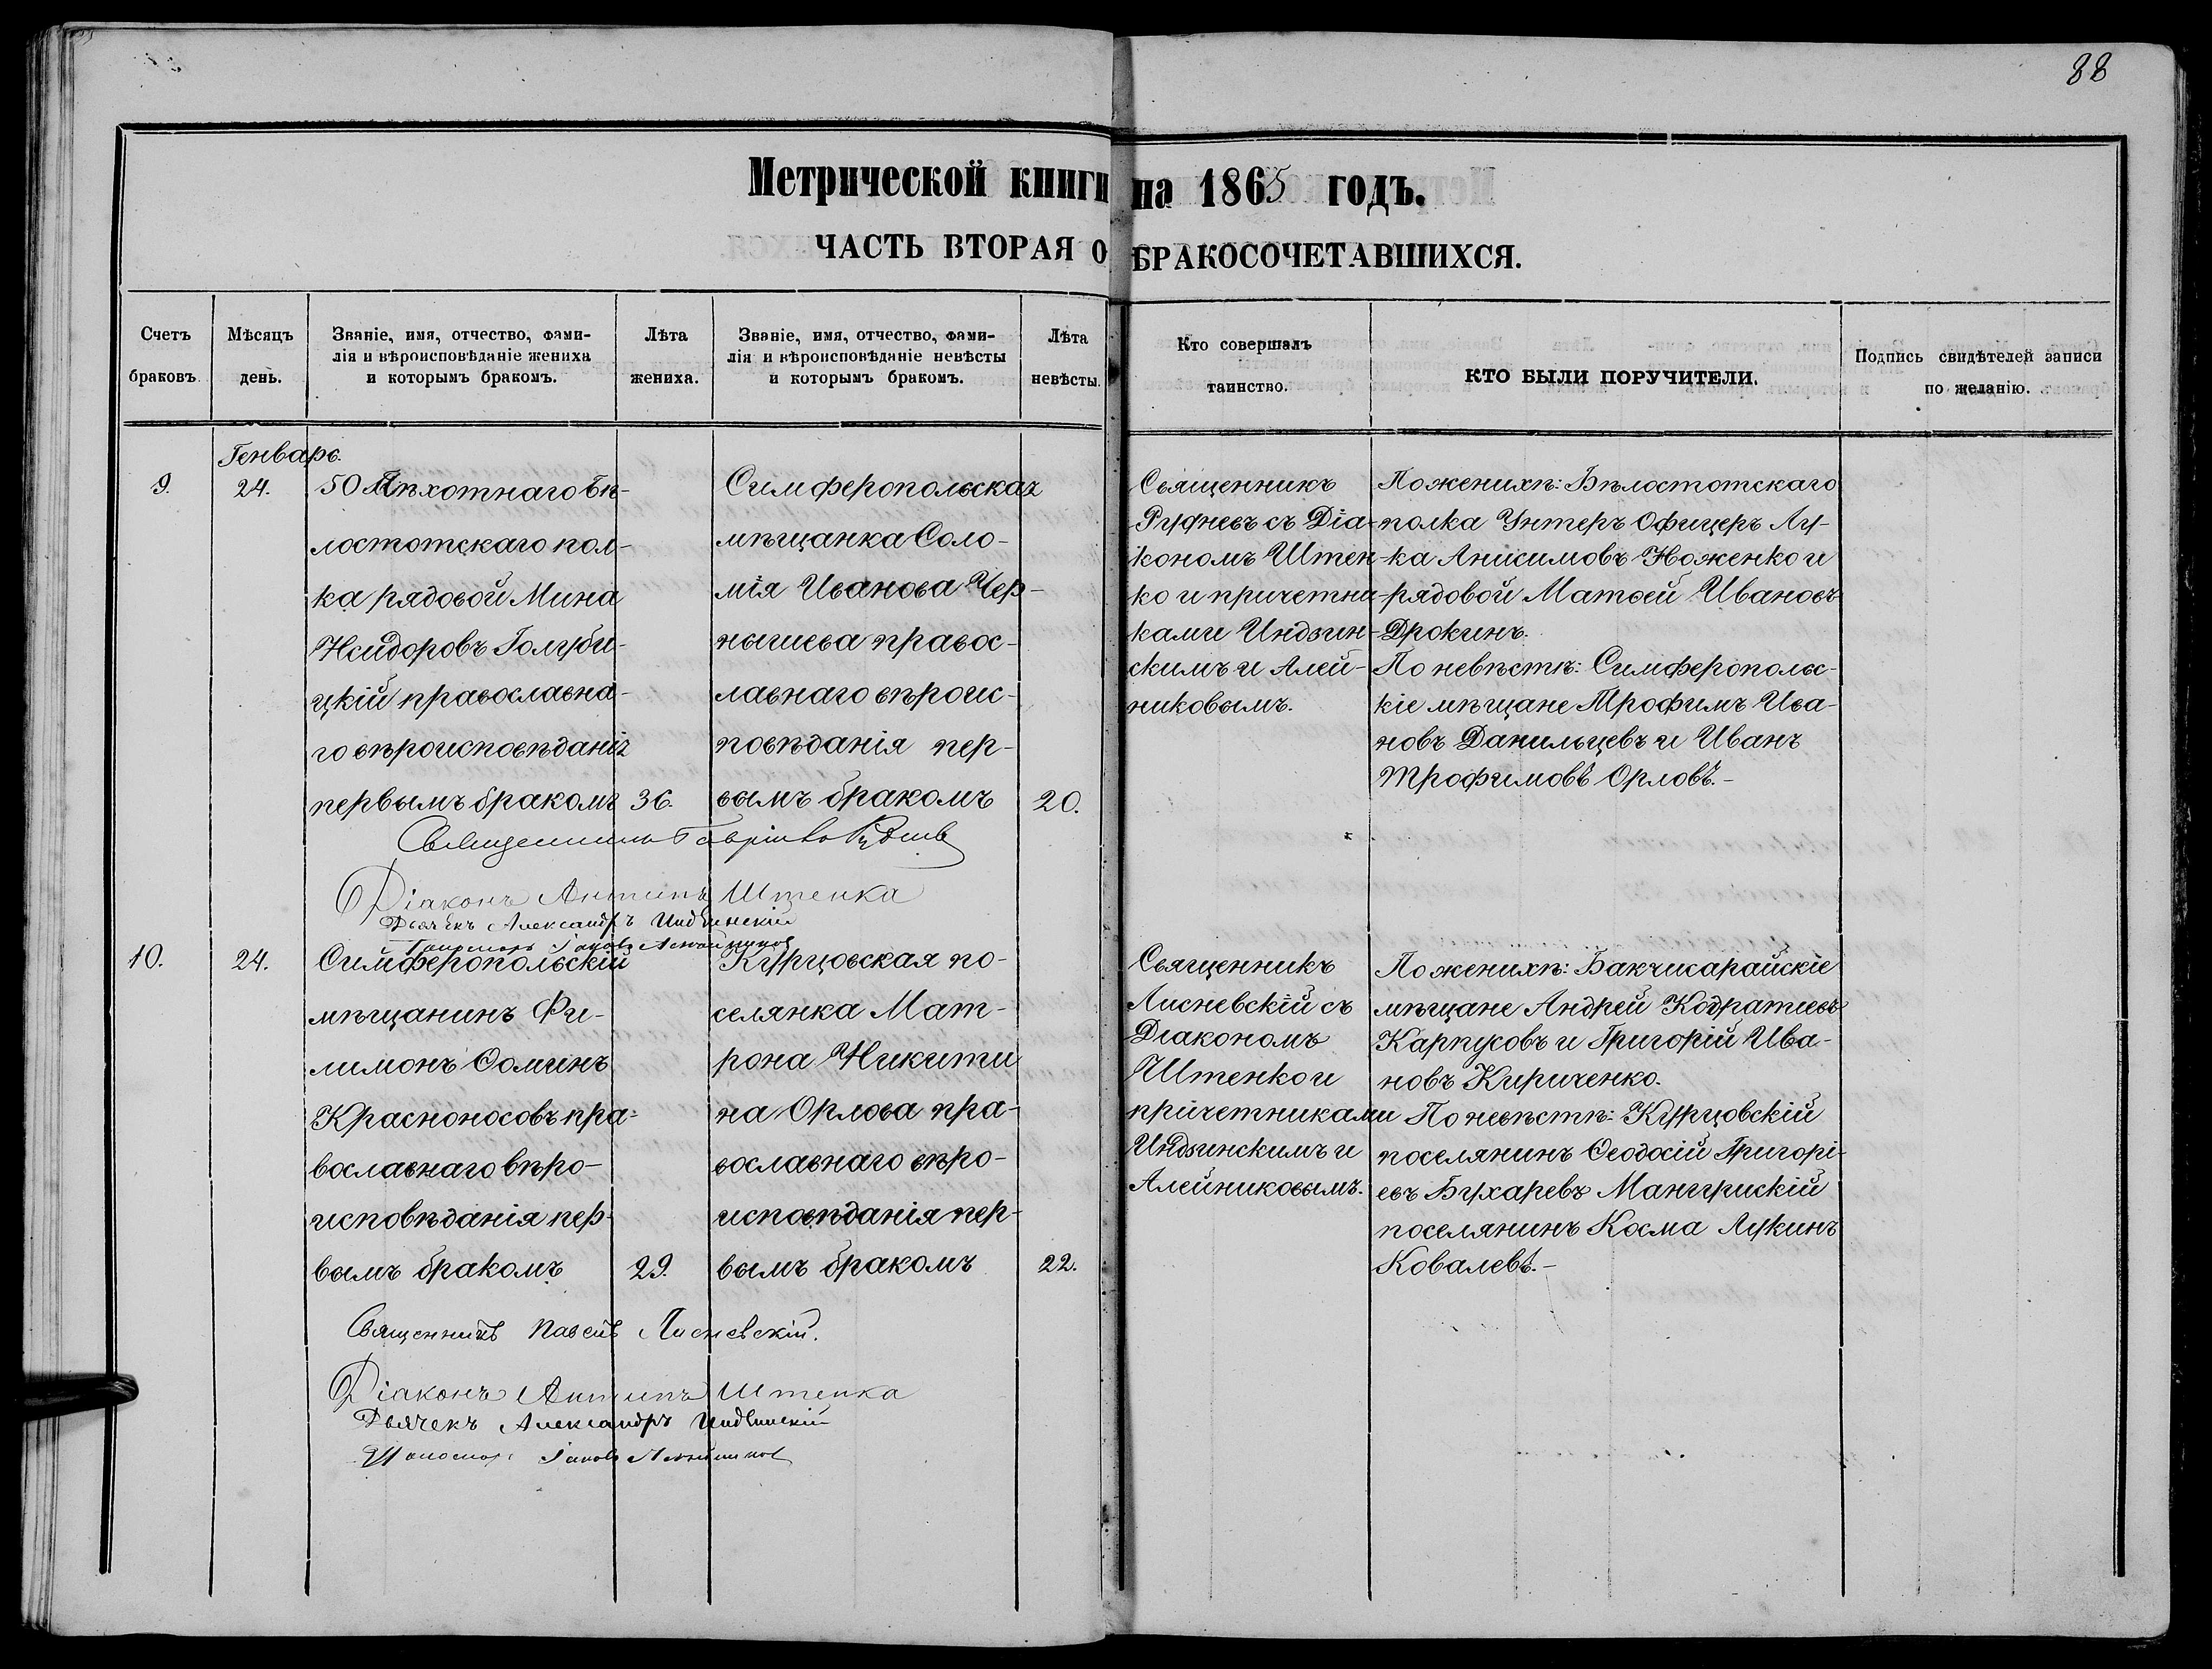 88
Метрической книги на 1865 годъ.
ЧАСТЬ ВТОРАЯ О БРАКОСОЧЕТАВШИХСЯ.
Счетъ браковъ.
Мѣсяцъ день.
Званіе, имя, отчество, фами-
лія и вѣроисповѣданіе жениха
и которымъ бракомъ.
Лѣта жениха.
Званіе, имя, отчество, фами-
лія и вѣроисповѣданіе невѣсты
и которымъ бракомъ.
Лѣта невѣсты.
Кто совершалъ
таинство.
КТО БЫЛИ ПОРУЧИТЕЛИ.
Подпись свидѣтелей записи
по желанію.
Генварь.
9.
24.
50 Пѣхотнаго Бѣ-
лостотскаго пол-
ка рядовой Мина
Исидоровъ Голуби-
цкій православна-
го вѣроисповѣданія
первымъ бракомъ
36.
Симферопольская
мѣщанка Соло-
мія Иванова Чер-
нышева правос-
лавнаго вѣроис-
повѣданія пер-
вымъ бракомъ
20.
Священникъ
Руфневъ съ Діа-
кономъ Штен-
ко и причетни-
ками Индзин-
скимъ и Алей-
никовымъ.
По женихѣ: Бѣлостотскаго
полка Унтеръ Офицеръ Лу-
ка Анисимовъ Ноженко и
рядовой Матвей Ивановъ
Дрокинъ.
По невѣстѣ: Симферопольс-
кіе мѣщане Трофимъ Ива-
новъ Данильцевъ и Иванъ
Трофимовъ Орловъ.-
Священникъ Гавріилъ
Діаконъ Антипъ Штенка
Дьячекъ Александръ Индзинскій
Пономарь Іаковъ Алейников
10.
24.
Симферопольскій
мѣщанинъ Фи-
лимонъ Ѳоминъ
Красноносовъ пра-
вославнаго вѣро-
исповѣданія пер-
вымъ бракомъ
29.
Курцовская по-
селянка Мат-
рона Никити
на Орлова пра-
вославнаго вѣро-
исповѣданія пер-
вымъ бракомъ
22.
Священникъ
Лисневскій съ
Діакономъ
Штенко и
причетниками
Индзинскимъ и
Алейниковымъ.
По женихѣ: Бакчисарайскіе
мѣщане Андрей Кодратіевъ
Карпусовъ и Григорій Ива-
новъ Кириченко.
По невѣстѣ: Курцовскій
поселянинъ Ѳеодосій Григорі-
евъ Бухаревъ Мангушскій
поселянинъ Косма Лукинъ
Ковалевъ.-
Священникъ Павелъ Лисневскій.
Діаконъ Антипъ Штенка
Дьячекъ Александръ Индзинскій
Пономарь Іаковъ Алейников